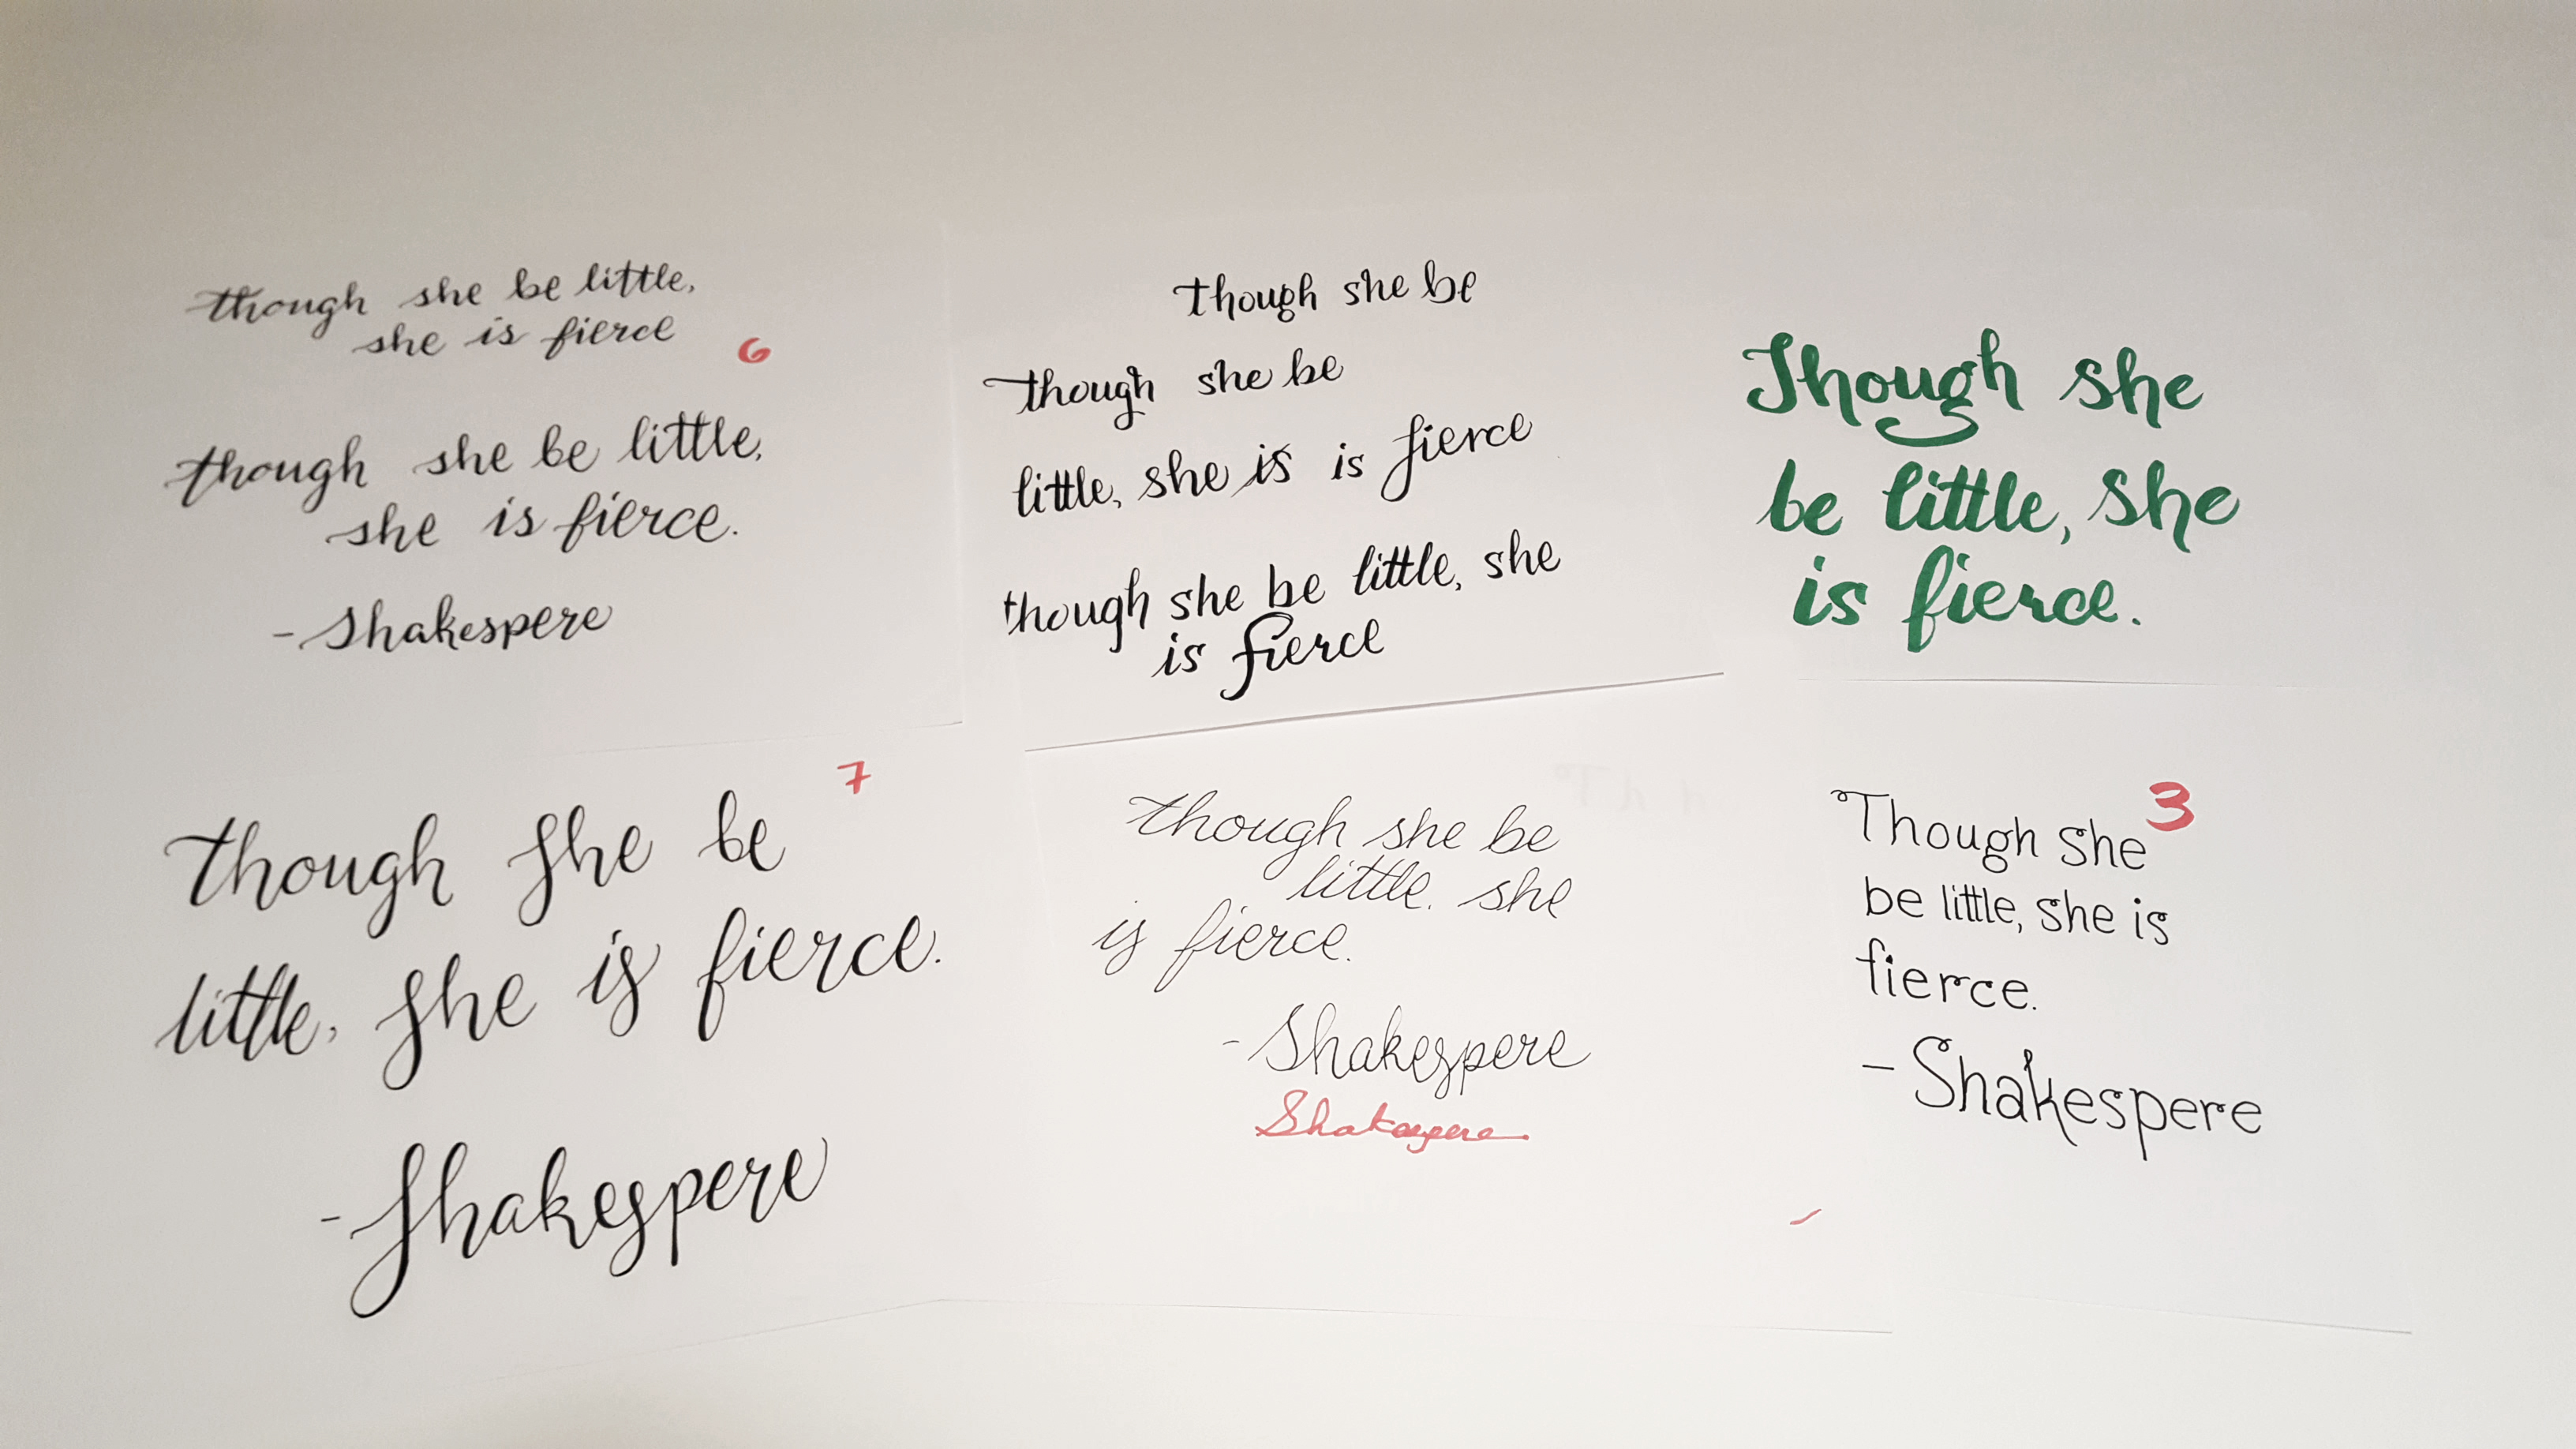 though she be little,
she is fierce
6
though she be little,
she is fierce.
- Shakespere
though she be
though she be
little, she is is fierce
though she be little, she
is fierce
Though she
be little, she
is fierce.
7
though she be
little, she is fierce.
- Shakespere
though she be
little. she
is fierce.
- Shakespere
Shakespere
3
Though she
be little, she is
fierce.
- Shakespere